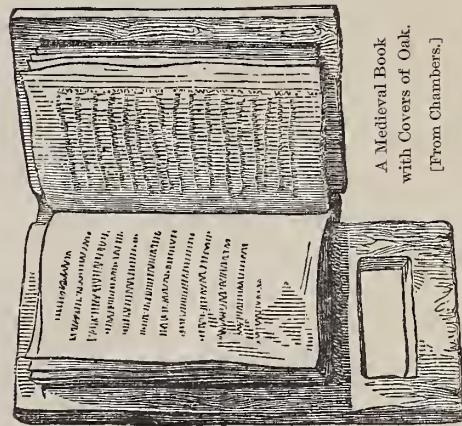 A Medieval Book
with Covers of Oak.
[From Chambers.]